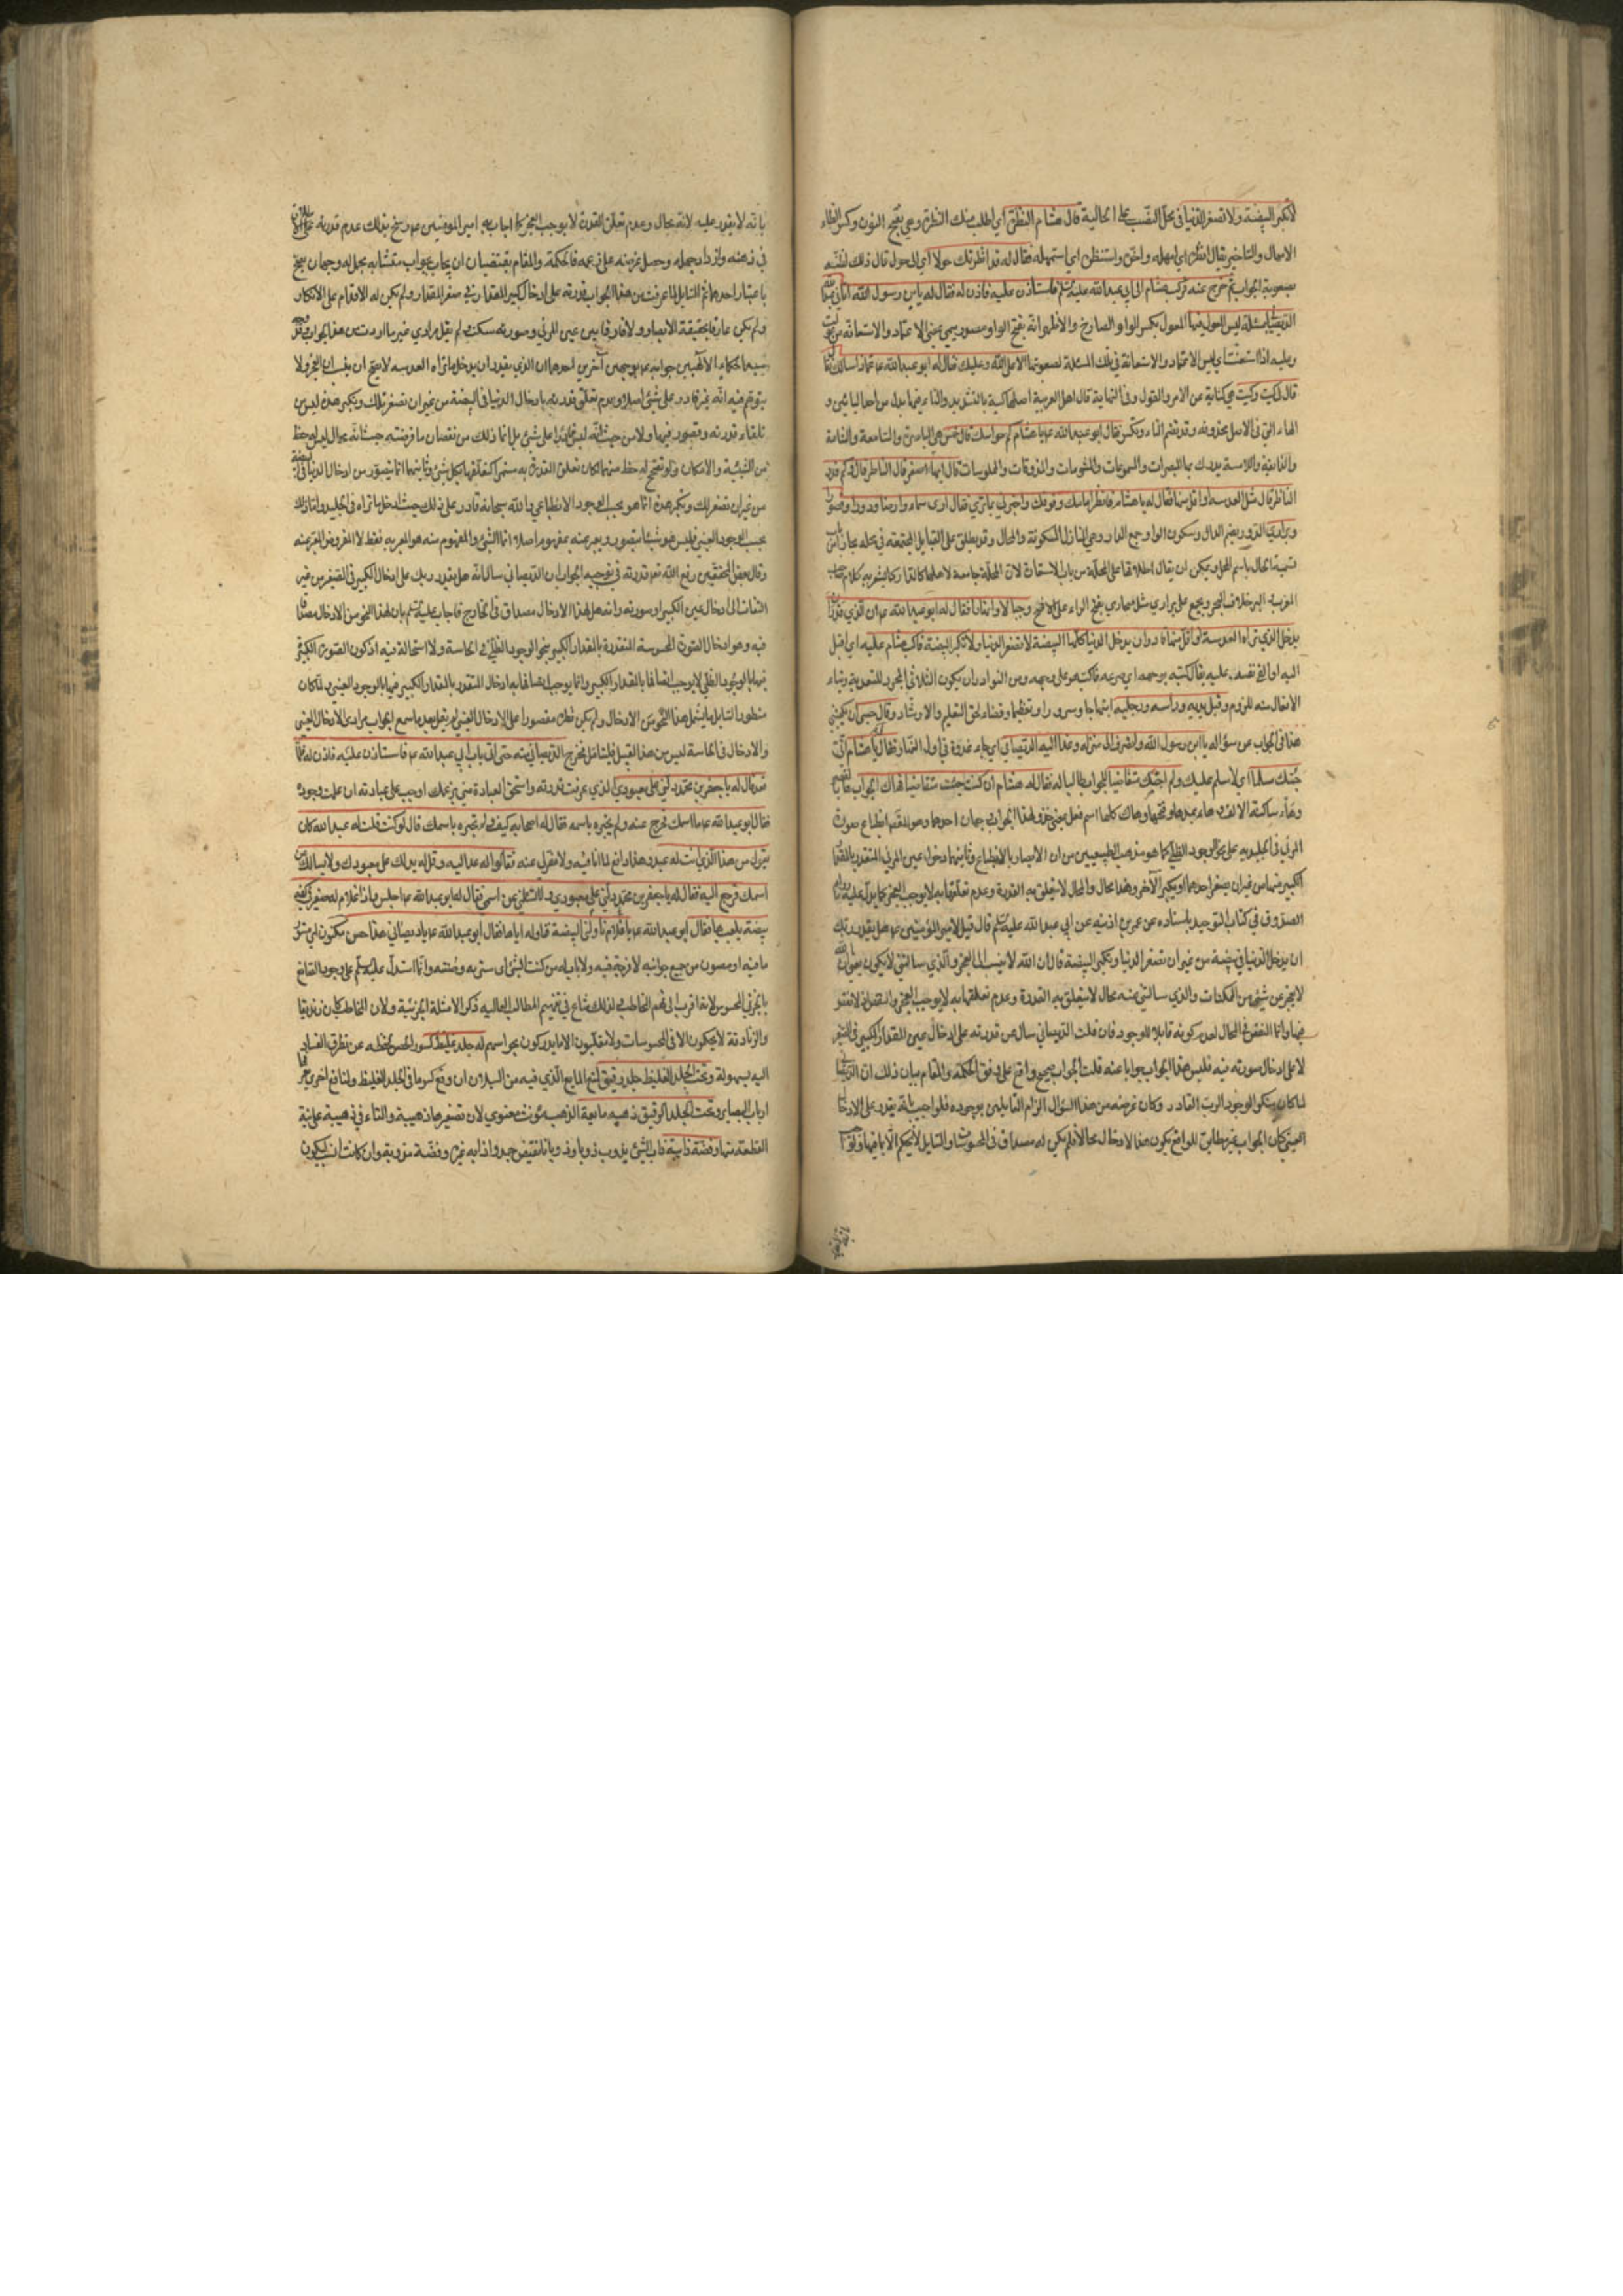 لا تكبر البيضة ولا تصغر الدنيا في محل النصب على الحالية قال هشام النظرة أي اطلب منك النظرة وهي بفتح النون وكسر الظاء
الامهال والتاخير يقال انظره اي امهله واخره واستنظره اي استمهله فقال له قد انظرتك حولا اي الحول قال ذلك لظنه
بصعوبة الجواب ثم خرج عنه فركب هشام الى ابي عبد الله عليه السلام فاستأذن عليه فاذن له فقال له يابن رسول الله اتاني عبد الله
الديصاني بمسئلة ليس المعول فيها المعول بكسر الواو والصارخ والاظهر انه بفتح الواو مصدر ميمي بمعنى الاعتماد والاستعانة من عولت
وعليه اذا استعنت اي ليس الاعتماد والاستعانة في تلك المسئلة لصعوبتها الا على الله وعليك فقال له ابو عبد الله ع عماذا سالك
قال كيت وكيت هي كناية عن الامر والقول وفي النهاية قال اهل العربية اصلها كية بالتشديد والتاء فيها بدل من احد اليائين و
الهاء التي في الاصل محذوفة وقد تضم التاء وتكسر فقال ابو عبد الله ع يا هشام كم حواسك قال خمس هي الباصرة والسامعة والشامة
والذايقة واللامسة يدرك بها المبصرات والمسموعات والمشمومات والمذوقات والملموسات قال ايها اصغر قال الناظر قال وكم قدر
الناظر قال مثل العدسة او اقل منها فقال له يا هشام فانظر امامك وفوقك واخبرني بما ترى فقال ارى سماء وارضا ودورا وقصورا
وبراري الدور بضم الدال وسكون الواو جمع الدار وهي المنازل المسكونة والمحال وقد يطلق على القبايل المجتمعة في محلة مجازا من
تسمية الحال باسم المحل ويمكن ان يقال اطلاقها على المحلة من باب الاستعارة لان المحلة جامعة لاهلها كالدار
البرية خلاف البحر ويجمع على براري مثل صحاري بفتح الراء وجبالا وانهارا فقال له ابو عبد الله ع ان الذي قدر ان
يدخل الذي تراه العدسة او اقل منها قادر ان يدخل الدنيا كلها البيضة لا تصغر الدنيا ولا تكبر البيضة فاكب هشام عليه اي اقبل
اليه او القى نفسه عليه يقال كبه بوجهه اي صرعه فاكب هو على وجهه ومن النوادر ان يكون الثلاثي المجرد للتعدية وبناء
الافعال منه للزوم وقبل يديه وراسه ورجليه ابتهاجا وسرورا وتعظيما وقضاء لحق التعليم والارشاد وقال حسبي ان يكفيني
هذا في الجواب عن سؤاله يا ابن رسول الله وانصرف الى منزله وغدا اليه الديصاني اي جاء غدوة في اول النهار فقال يا هشام اني
جئتك مسلما اي لاسلم عليك ولم اجئك متقاضيا للجواب طالبا له فقال له هشام ان كنت جئت متقاضيا فهاك الجواب
وهاء ساكنة الالف وهاء بمدها وفتحها وهاك كلها اسم فعل بمعنى خذ ولهذا الجواب جهان احدهما وهو انطباع صورة
المرئي في الجليدية على نحو الوجود الظلي كما هو مذهب الطبيعيين من ان الابصار بالانطباع وثانيهما دخول عين المرئي المتقدر بالمقدار
الكبير فيها من غير ان يصغر احدهما او يكبر الآخر وهذا محال والمحال لا يتعلق به القدرة وعدم تعلقها به لا يوجب العجز كما يدل عليه ما رواه
الصدوق في كتاب التوحيد باسناده عن عمر بن اذينه عن ابي عبد الله عليه السلام قال قيل لامير المؤمنين ع هل يقدر ربك
ان يدخل الدنيا في بيضة من غير ان تصغر الدنيا وتكبر البيضة قال ان الله لا ينسب الى العجز والذي سالتني لا يكون
لا يعجز عن شيء من الممكنات والذي سالتني عنه محال لا يتعلق به القدرة وعدم تعلقها به لا يوجب العجز والنقص اذ لا نقص
فيها وانما النقص في المحال لعدم كونه قابلا للوجود فان قلت الديصاني سال عن قدرته على ادخال عين المقدار الكبير في الصغير
لا على ادخال صورته فيه فليس هذا الجواب جوابا عنه قلت الجواب صحيح واقع على وفق الحكمة والمقام بيان ذلك ان الديصاني
لما كان منكرا لوجود الرب القادر وكان غرضه من هذا السؤال الزام القايلين بوجوده فلو اجيب بانه يقدر على الادخال
العيني كان الجواب غير مطابق للواقع لكون هذا الادخال محالا فلم يكن له مصداق في المحسوسات والسايل لا يحكم الا بما فيها ولو اجيب
بانه لا يقدر عليه لانه محال وعدم تعلق القدرة لا يوجب العجز كما اجاب به امير المؤمنين ع رسخ بذلك عدم قدرته
في ذهنه وازداد جهله وحصل غرضه على زعمه فالحكمة والمقام يقتضيان ان يجاب بجواب متشابه مجمل له وجهان يصح
باعتبار احدهما ثم السايل لما عرفت من هذا الجواب قدرته على ادخال كبير المقدار في صغير المقدار ولم يكن له الاقدام على الانكار
ولم يكن عارفا بحقيقة الابصار ولا فارقا بين عين المرئي وصورته سكت ولم يقل مرادي غير ما اردت من هذا الجواب
سيد الحكماء الالهيين جوابه ع بوجهين آخرين احدهما ان الذي يقدر ان يدخل ما تراه العدسة لا يصح ان ينسب الى العجز ولا
يتوهم فيه انه غير قادر على شئ اصلا وعدم تعلق قدرته بادخال الدنيا في البيضة من غير ان تصغر تلك وتكبر هذه ليس من
تلقاء قدرته وقصور فيها ولا من حيث انه ليس قادرا على شئ بل انما ذلك من نقصان ما فرضته حيث انه محال ليس له حظ
من الشيئية والامكان ولو تصحح له حظ منهما لكان تعلق القدرة به مستمرا كتعلقها بكل شئ وثانيهما انما يتصور من ادخال الدنيا في البيضة
من غير ان تصغر تلك وتكبر هذه انما هو بحسب الوجود الانطباعي والله سبحانه قادر على ذلك حيث ادخل ما تراه في الجليدية واما ذلك
بحسب الوجود العيني فليس هو شيئا يتصور ويعبر عنه بمفهوم اصلا انما الشئ والمفهوم منه هو المعبر به فقط لا المفروض المعبر عنه
وقال بعض المحققين رفع الله تعالى قدرته في توجيه الجواب ان الديصاني سال انه هل يقدر ربك على ادخال الكبير في الصغير من غير
التفات الى ادخال عين الكبير او صورته وانه هل لهذا الادخال مصداق في الخارج فاجاب عليه السلام بان لهذا النحو من الادخال مصداقا
فيه وهو ادخال الصورة المحسوسة المتقدرة بالمقدار الكبير بنحو الوجود الظلي في الحاسة ولا استحالة فيه اذ كون الصورة الكبيرة
فيها بالوجود الظلي لا يوجب اتصافها بالمقدار الكبير وانما يوجب اتصافها به ادخال المتقدر بالمقدار الكبير فيها بالوجود العيني ولما كان
منظور السايل ما يشمل هذا النحو من الادخال ولم يكن نظره مقصورا على الادخال العيني لم يقل بعد ما سمع الجواب مرادي الادخال العيني
والادخال في الحاسة ليس من هذا القبيل فليتامل فخرج الديصاني عنه حتى اتى باب ابي عبد الله ع فاستاذن عليه فاذن له فلما
قعد قال له يا جعفر بن محمد دلني على معبودي الذي عرفت قدرته واستحق العبادة مني بزعمك او يجب علي عبادته ان علمت وجوده
فقال ابو عبد الله ع ما اسمك فخرج عنه ولم يخبره باسمه فقال له اصحابه كيف لم تخبره باسمك قال لو كنت قلت له عبد الله كان
يقول من هذا الذي انت له عبد وهذا دافع لما انا فيه ولا مفر لي عنه فقالوا له عد اليه وقل له يدلك على معبودك ولا يسالك عن
اسمك فرجع اليه فقال له يا جعفر بن محمد دلني على معبودي ولا تسئلني عن اسمي فقال له ابو عبد الله ع اجلس واذا غلام له صغير في كفه
بيضة يلعب بها فقال ابو عبد الله ع يا غلام ناولني البيضة فناوله اياها فقال ابو عبد الله ع يا ديصاني هذا حصن مكنون اي مستور
ما فيه او مصون من جميع جوانبه لا فرجة فيه ولا باب له من كننت الشئ اي سترته وصنته وانما استدل عليه السلام على وجود الصانع
بالجزئي المحسوس لانه اقرب الى فهم المخاطب ولذلك شاع في تفهيم المطالب العالية ذكر الامثلة الجزئية ولان المخاطب كان زنديقا
والزنادقة لا يحكمون الا في المحسوسات ولا يقبلون الا ما يدركون بحواسهم له جلد غليظ كسور الحصن يحفظه عن تطرق الفساد
اليه بسهولة وتحت الجلد الغليظ جلد رقيق لمنع المايع الذي فيه من السيلان ان وقع كسر ما في الجلد الغليظ ولمنافع اخرى
ارباب البصاير وتحت الجلد الرقيق ذهبة مايعة الذهب مؤنث معنوي لان تصغيرها ذهيبة والتاء في ذهبة على نية
القطعة منها وفضة ذائبة ذاب الشئ يذوب ذوبا وذوبانا نقيض جمد واذابه غيره وفضة مذوبة وان كانت انسب لكون